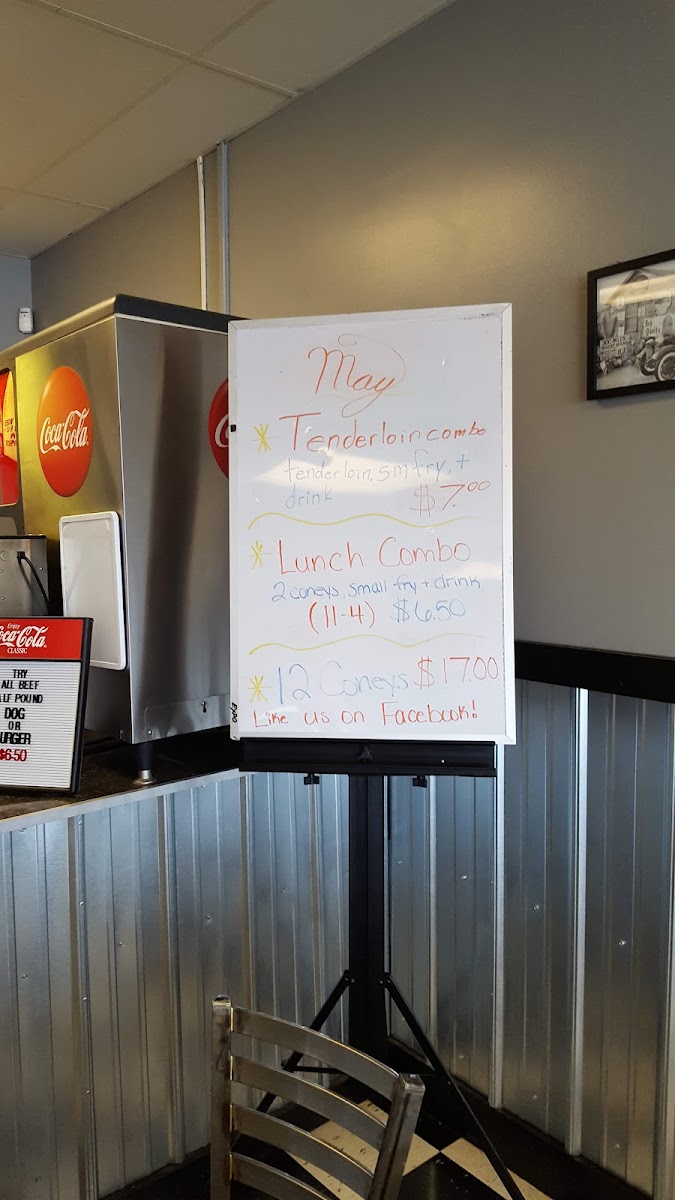 May
Tenderloin combo
tenderloin, sm fry, +
drink $7.00
Lunch Combo
2 coneys, small fry + drink
(11-4) $6.50
12 Coneys $17.00
Like us on Facebook!
EXPO
Coca-Cola
Enjoy
Coca-Cola
CLASSIC
TRY
ALL BEEF
ALF POUND
DOG
OR
URGER
$6.50